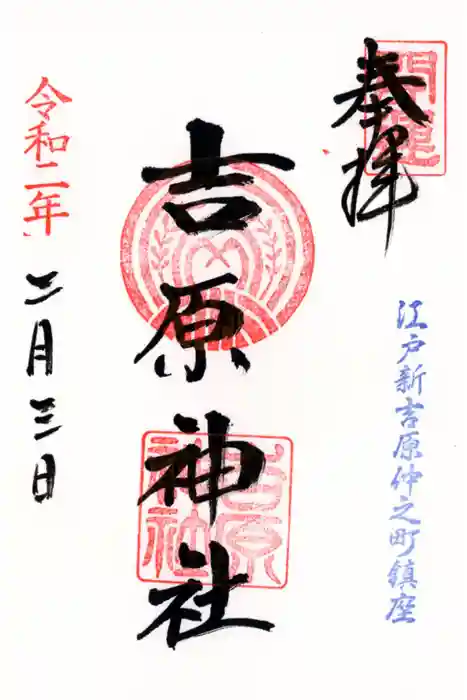 奉拝
開運
江戸新吉原仲之町鎮座
吉原神社
吉原
神社
令和二年
二月三日